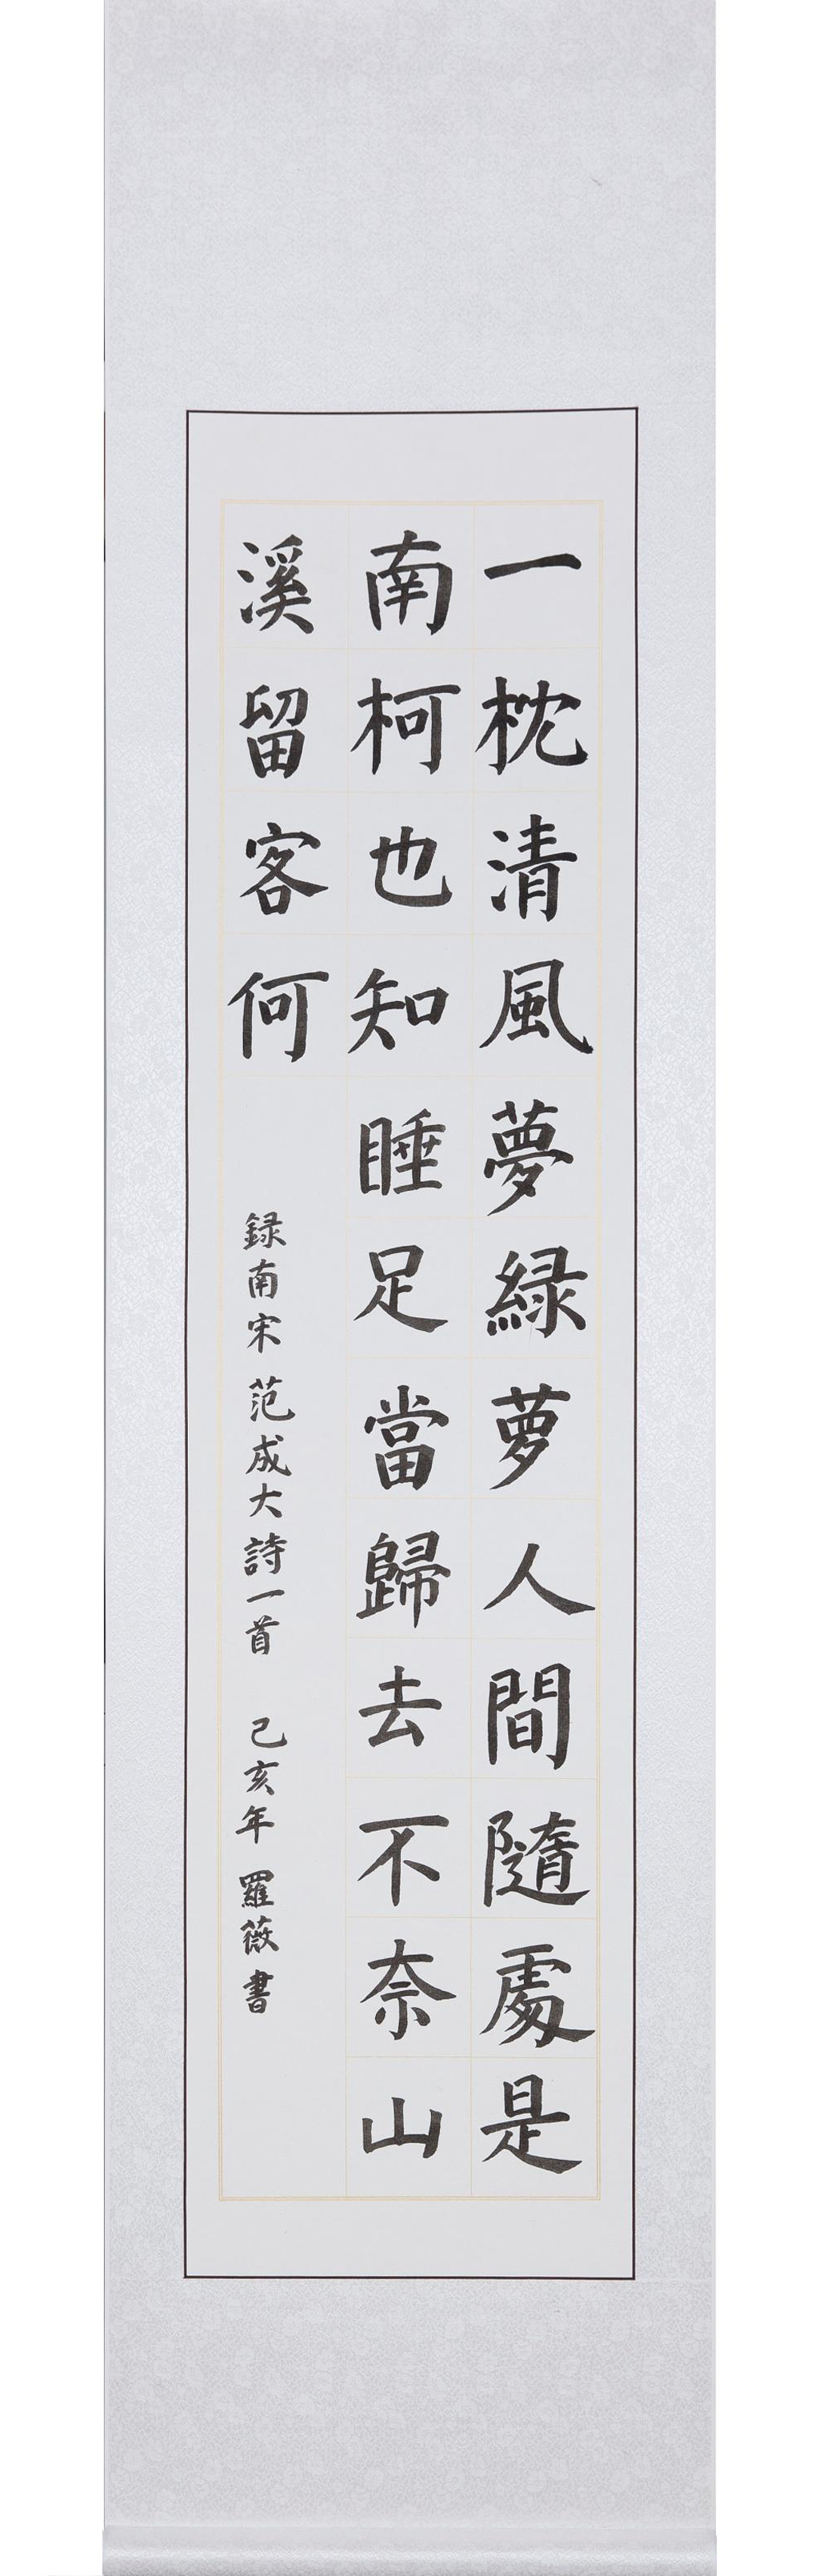 一枕清風夢緑蘿人間隨處是
南柯也知睡足當歸去不奈山
溪留客何
録南宋范成大詩一首 己亥年羅薇書